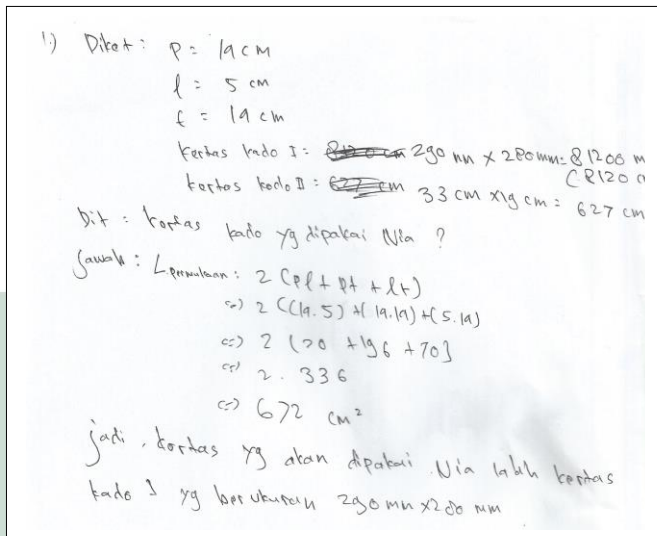 1.) Diket : p = 14 cm
l = 5 cm
t = 14 cm
Kertas kado I : 290 mm x 280 mm = 81200 m
(8120 c
kertas kado II : 627 cm 33 cm x 19 cm = 627 cm
Dit : kertas kado yg dipakai Nia ?
Jawab : L permukaan : 2 (pl + pt + lt)
<=> 2 ((14.5) + (14.14) + (5.14)
<=> 2 (70 + 196 + 70)
<=> 2 . 336
<=> 672 cm²
jadi, kertas yg akan dipakai Nia ialah kertas
kado I yg berukuran 290 mm x 280 mm